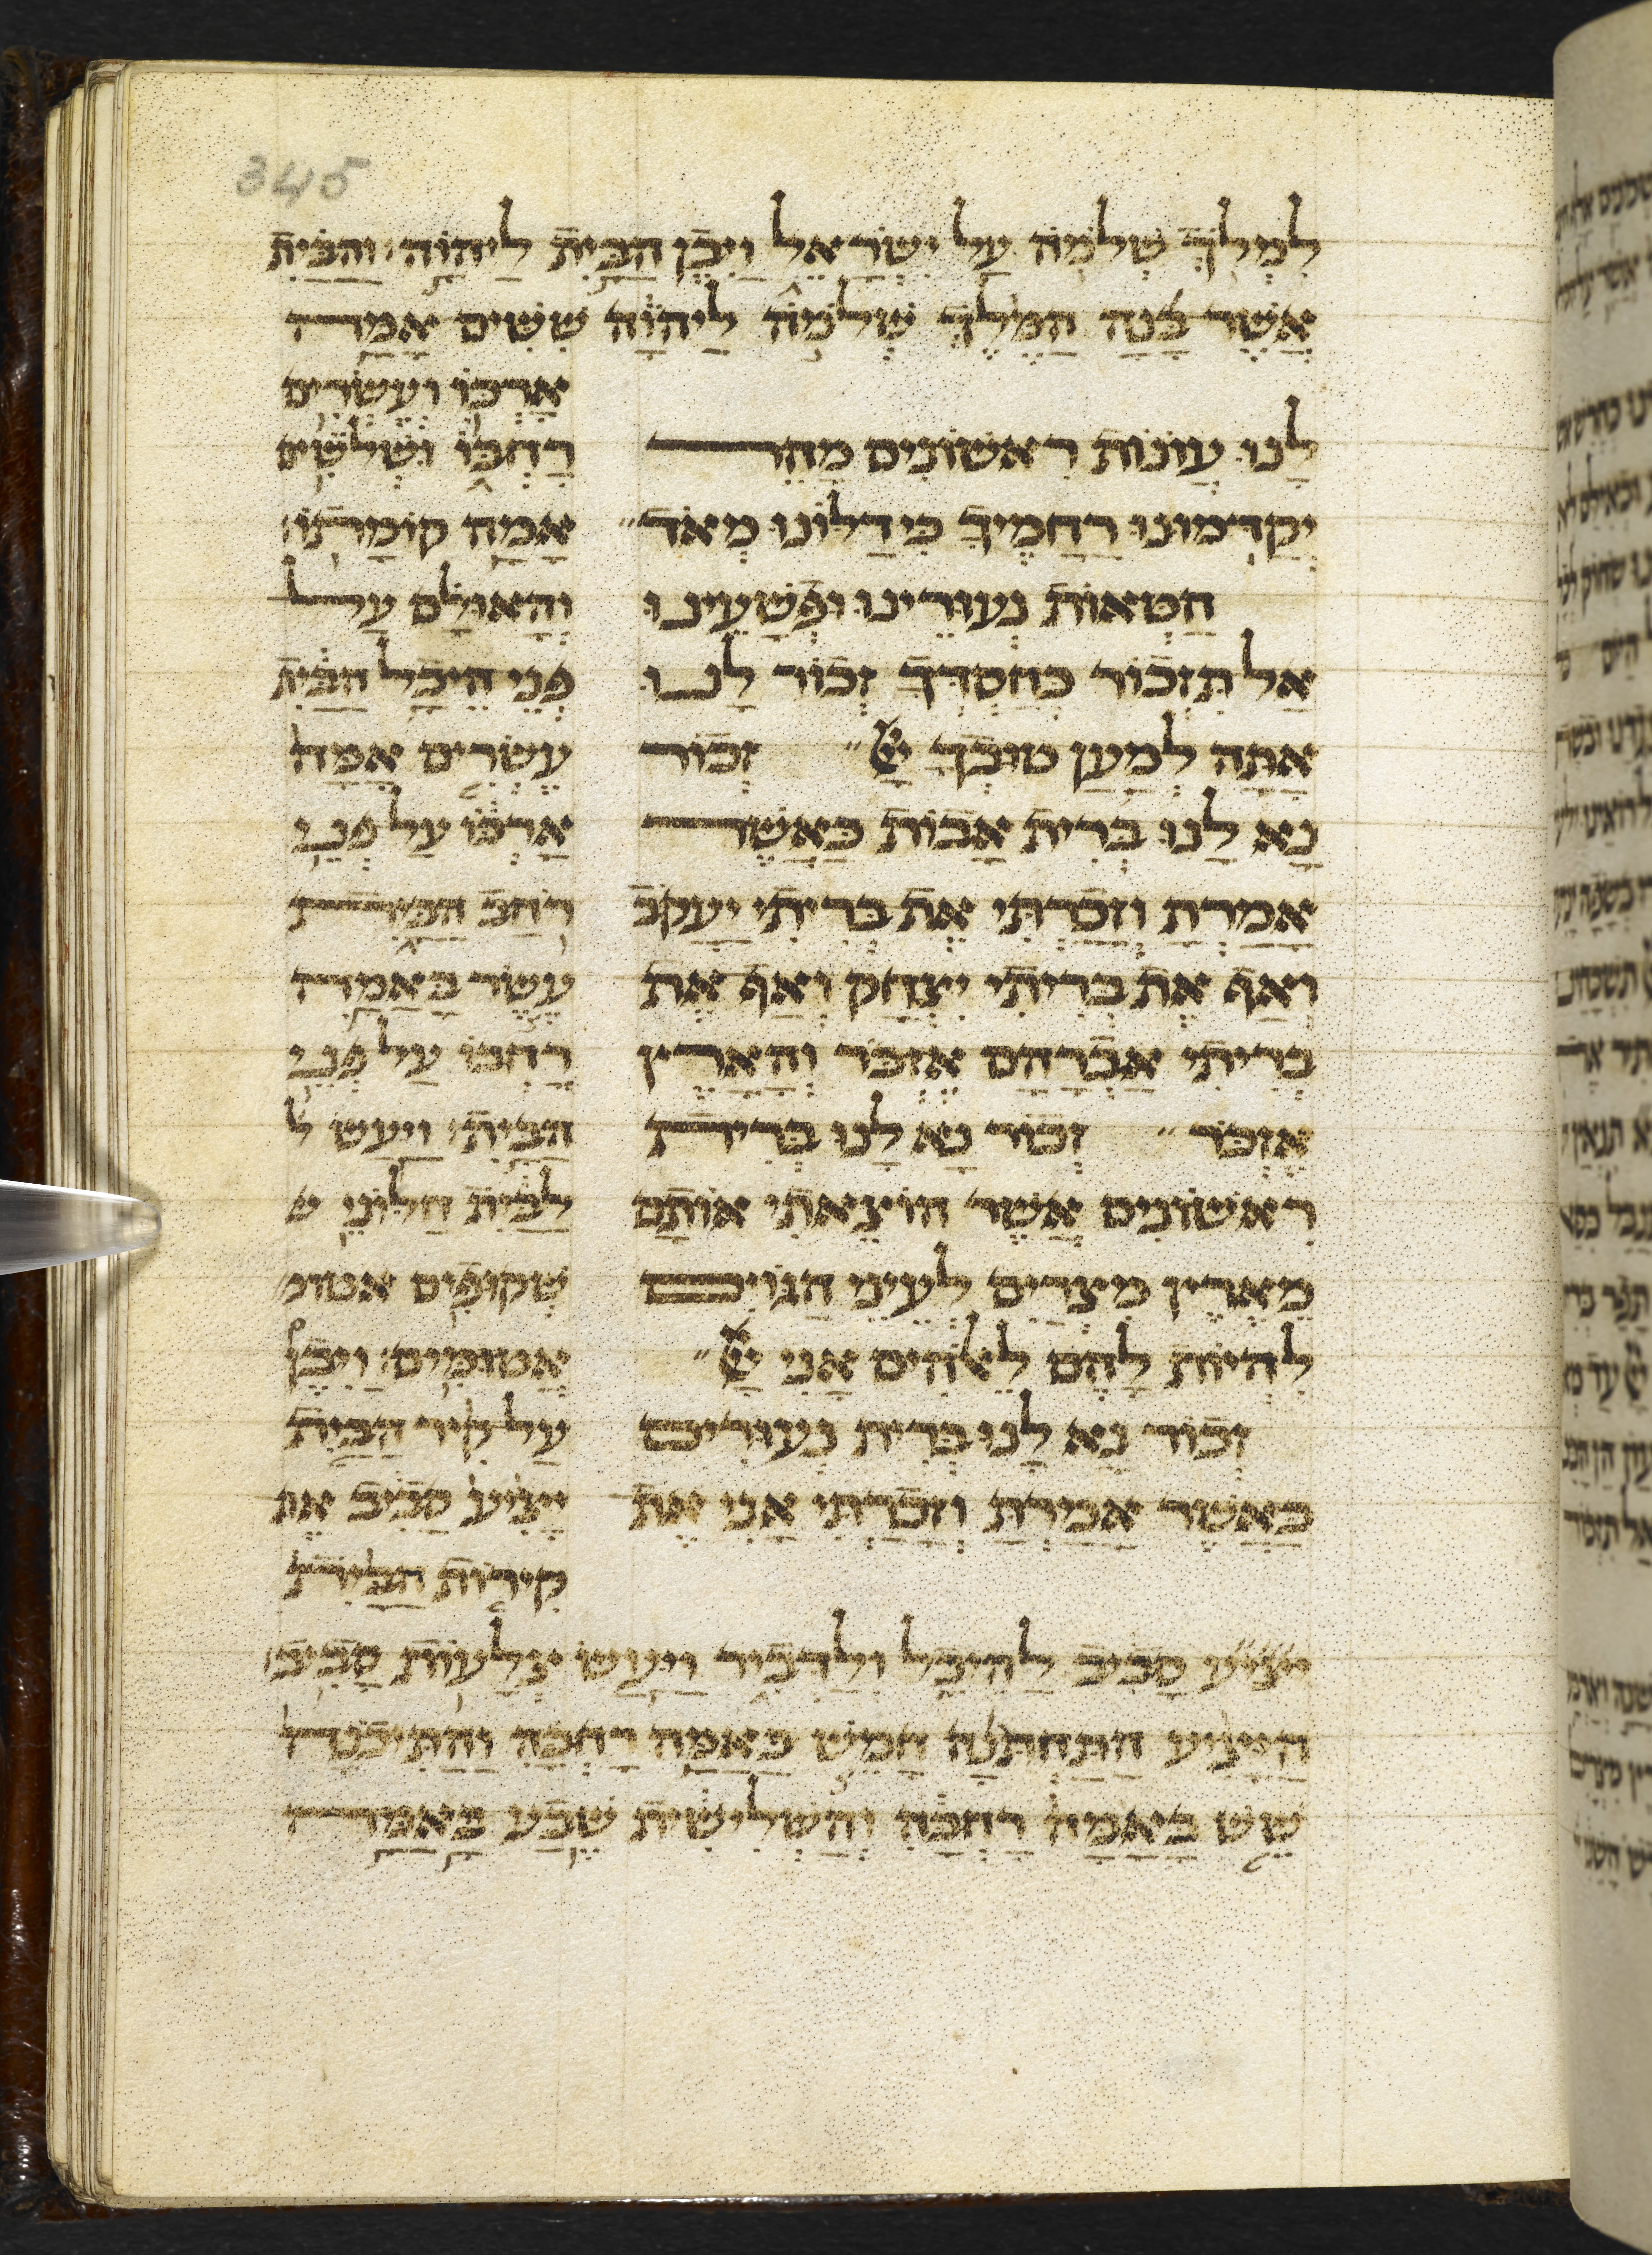 345
למלך שלמה על ישראל ויבן הבית ליהוה׃ והבית
אשר בנה המלך שלמה ליהוה ששים אמה
לנו עונות ראשונים מהר
יקדמונו רחמיך כי דלונו מאד״
חטאות נעורינו ופשעינו
אל תזכור כחסדך זכור לנו
אתה למען טובך יי״ זכור
נא לנו ברית אבות כאשר
אמרת וזכרתי את בריתי יעקב
ואף את בריתי יצחק ואף את
בריתי אברהם אזכר והארץ
אזכר״ זכור נא לנו ברית
ראשונים אשר הוצאתי אותם
מארץ מצרים לעיני הגוים
להיות להם לאלהים אני יי״
זכור נא לנו ברית נעורים
כאשר אמרת וזכרתי אני את
ארכו ועשרים
רחבו ושלשים
אמה קומתו׃
והאולם על
פני היכל הבית
עשרים אמה
ארכו על פני
רחב הבית
עשר באמה
רחבו על פני
הבית׃ ויעש ל
לבית חלוני
שקופים אטומ
אטומים׃ ויבן
על קיר הבית
יציע סביב את
קירות הבית
יציע סביב להיכל ולדביר ויעש צלעות סביב׃
היציע התחתנה חמש באמה רחבה והתיכנה
שש באמה רחבה והשלישית שבע באמה